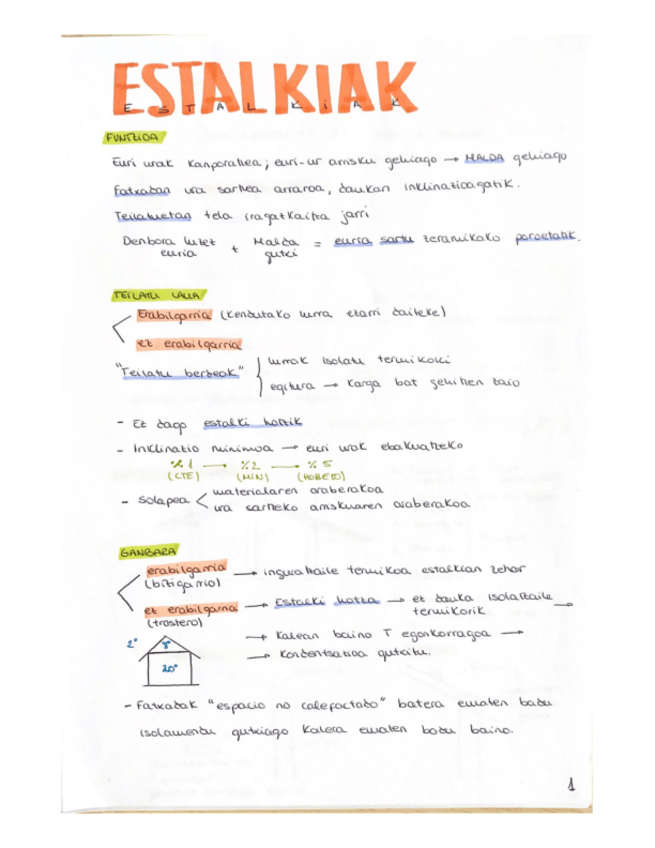 ESTALKIAK
ESTALKIAK
FUNTZIOA
Euri urak kanporatzea; euri-ur arrisku gehiago → MALDA gehiago
Fatxadan ura sartzea arraroa, daukan inklinazioagatik.
Teilatuetan tela iragazkaitza jarri
Denbora luzez euria + Malda gutxi = euria sartu zeramikako poroetatik.
TEILATU LAUA
Erabilgarria (kendutako lurra ezarri daiteke)
ez erabilgarria
"Teilatu berdeak" lurrak isolatu termikoki
egitura → karga bat gehitzen zaio
- Ez dago estalki hotzik
- Inklinazio minimoa → euri urak ebakuatzeko
%1 → %2 → %5
(CTE) (MIN) (HOBETO)
- Solapea < materialaren araberakoa
ura sartzeko arriskuaren araberakoa
GANBARA
erabilgarria → inguratzaile termikoa estalkian zehar
(bizigarrio)
ez erabilgarria → Estalki hotza → ez dauka isolatzaile termikorik →
(trastero)
→ Kalean baino T egonkorragoa →
→ Kondentsazioa gutxitu.
2° 8°
20°
- Fatxadak "espacio no calefactado" batera ematen badu
isolamendu gutxiago kalera ematen badu baino.
1